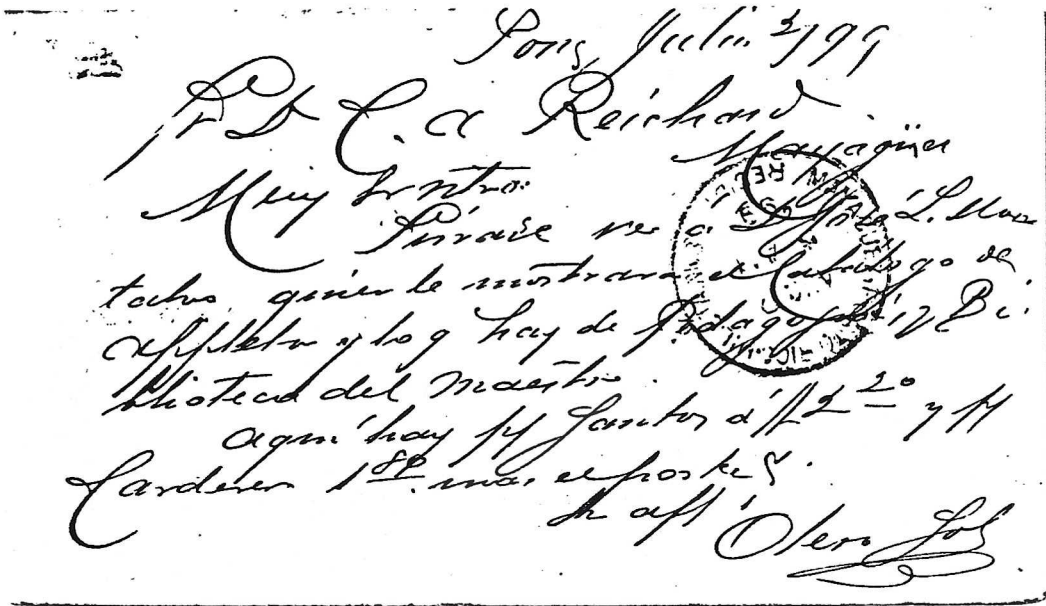 Julio 3/99
Sr D C. A Reichard
Mayagüez
Muy Sr ntro:
Sírvase ver a D José L.
quien le mostrara el Catalogo de
Appleton y lo q hay de Pedagogía y Bi-
blioteca del Maestro.
Aqui hay Santos á 2 20 y
Carderera 1 80 mas el porte
Su aff
Otero